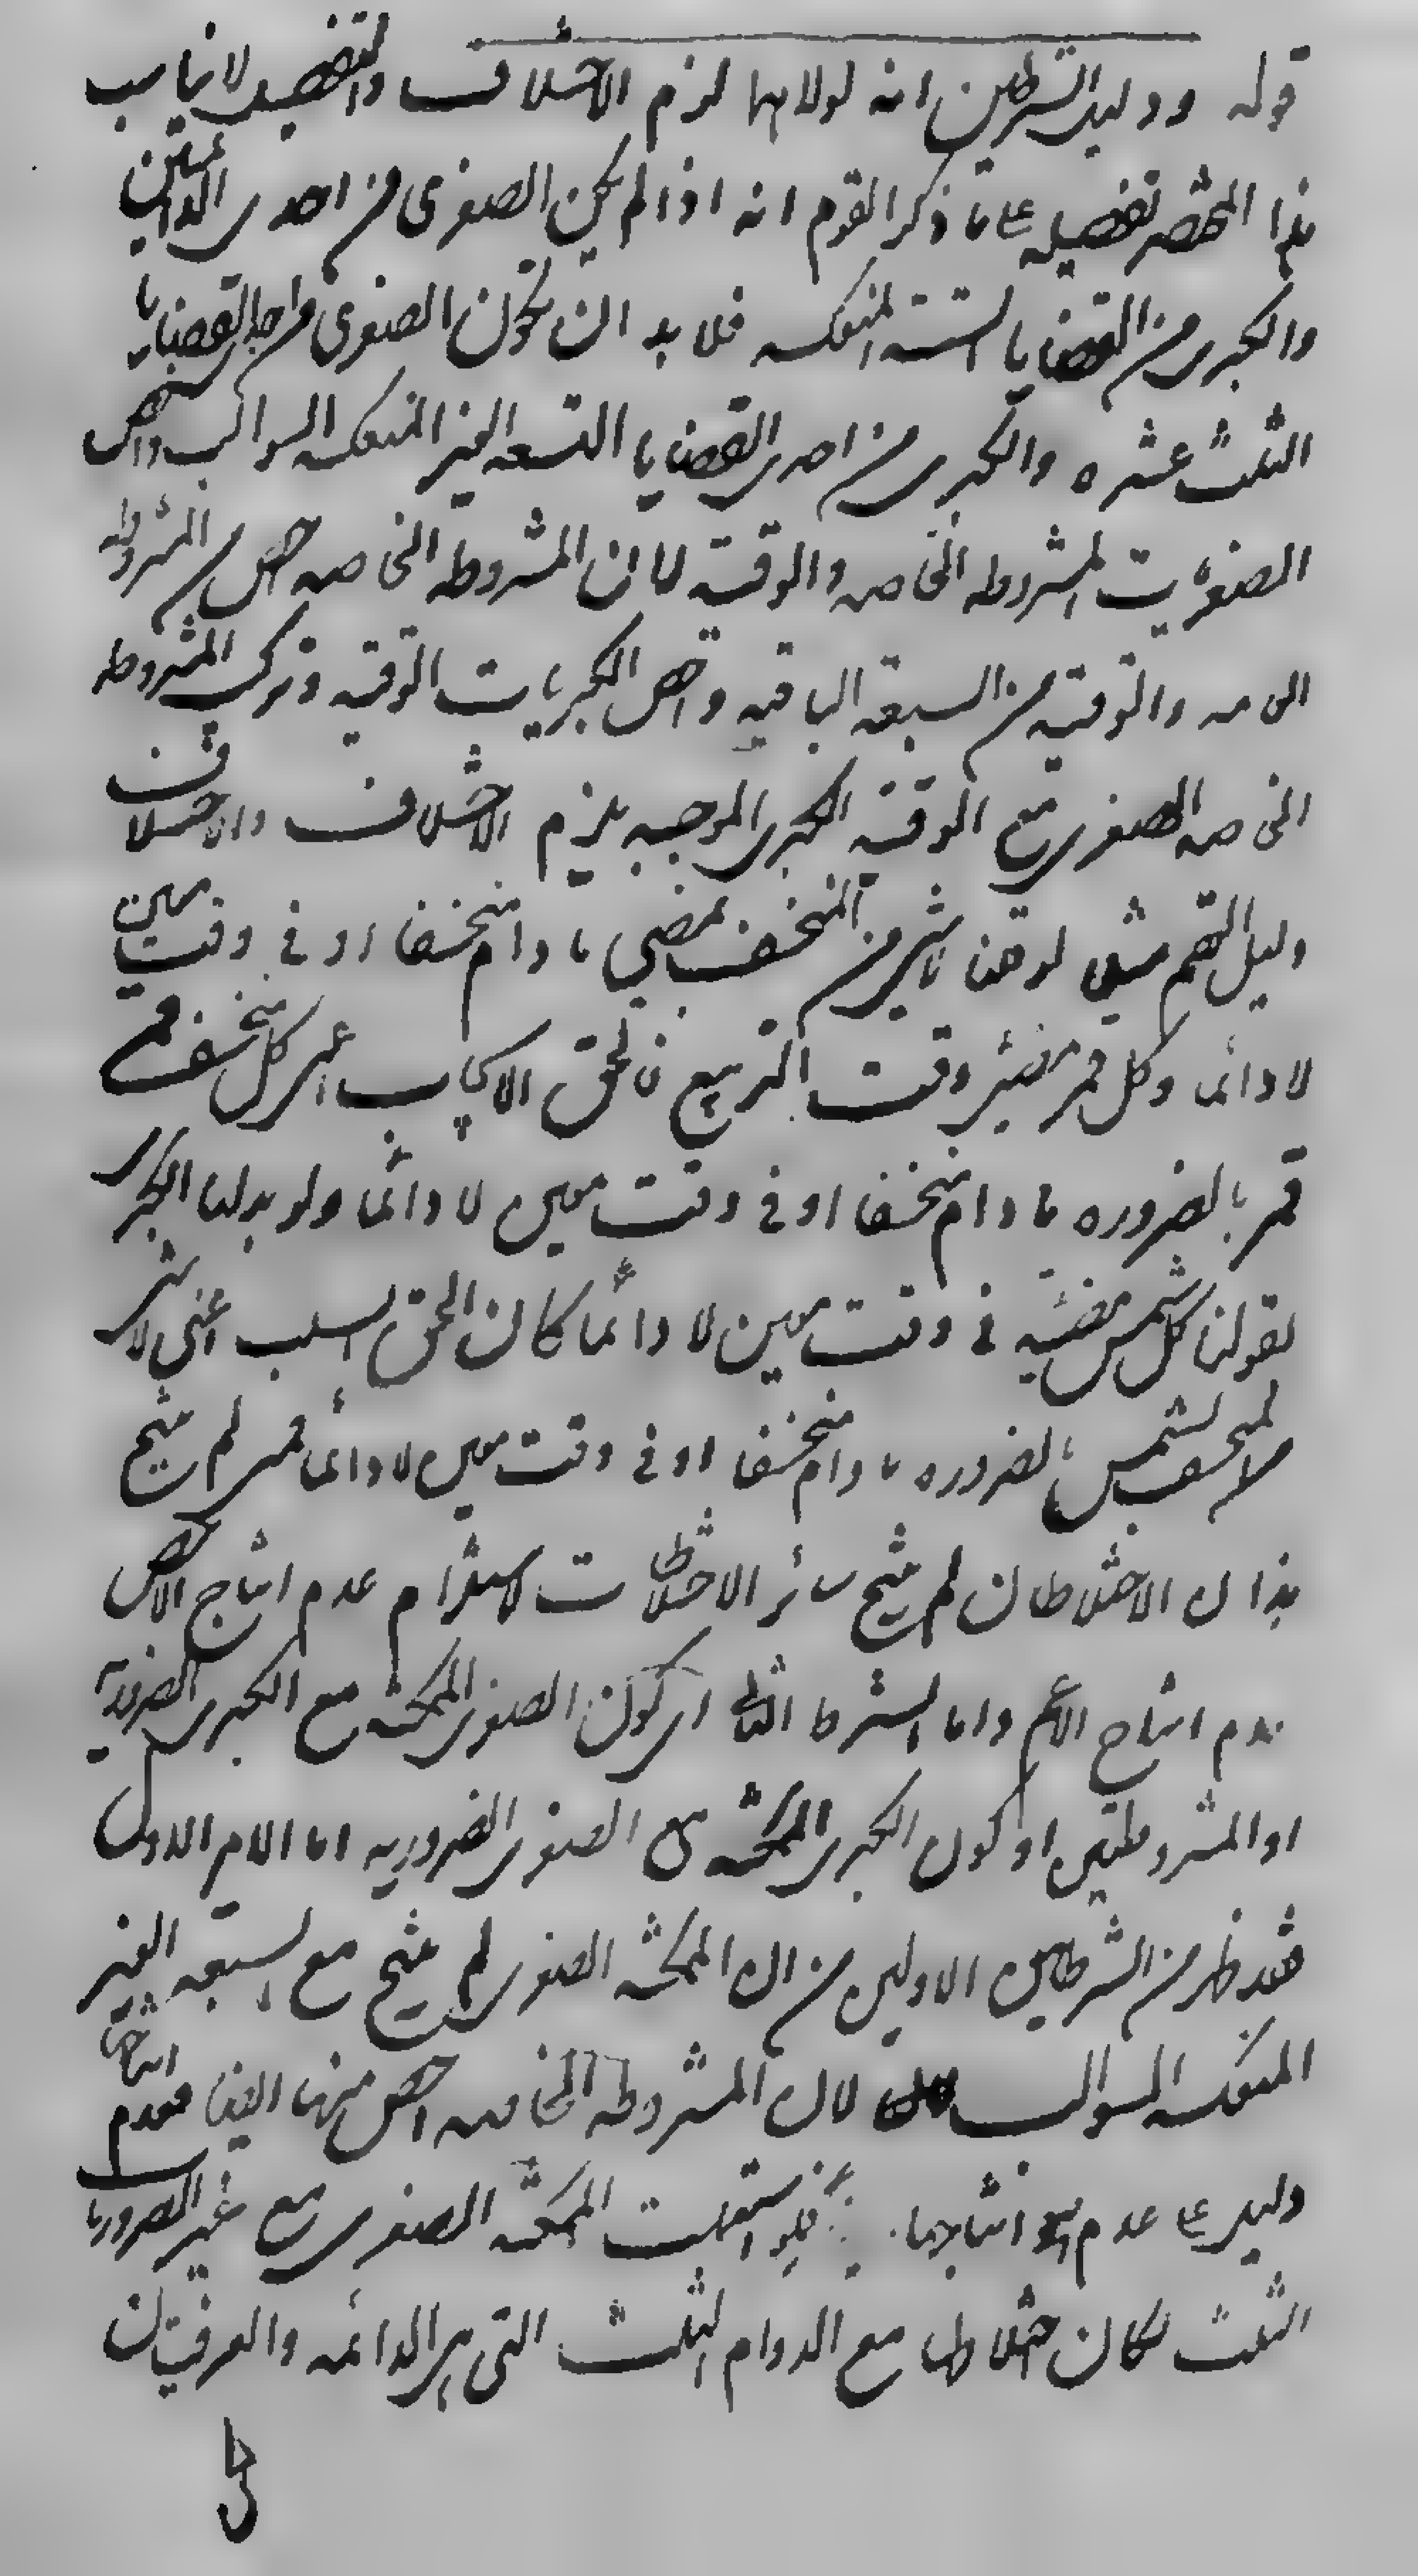 قوله ودليل الشرطين انه لولاهما لزم الاختلاف والتفصيل لا يناسب
هذا المختصر تفصيله على ما ذكر القوم انه اذا لم يكن الصغرى من احدى الدائمتين
والكبرى من القضايا الستة المنعكسة فلا بد ان تكون الصغرى من احدى القضايا
الثلث عشره والكبرى من احدى القضايا التسعه الغير المنعكسه السوالب واخص
الصغريات المشروطه الخاصه والوقتيه لان المشروطه الخاصه اخص من المشروطه
العامه والوقتيه من السبعه الباقيه واخص الكبريات الوقتيه وتركب المشروطه
الخاصه الصغرى مع الوقتيه الكبرى الموجبه يلزم الاختلاف والاختلاف
دليل العقم مثلا لو قلنا لا شئ من المنخسف بمضئ ما دام منخسفا او فى وقت معين
لا دائما وكل قمر مضئ وقت التربيع فالحق الايجاب اعنى كل منخسف فهى
قمر بالضروره ما دام منخسفا او فى وقت معين لا دائما ولو بدلنا الكبرى
بقولنا كل شمس مضيئه فى وقت معين لا دائما كان الحق السلب اعنى لا شئ
من المنخسف بشمس بالضروره ما دام منخسفا او فى وقت معين لا دائما فمتى لم ينتج
هذان الاختلاطان لم ينتج سائر الاختلاطات لاستلزام عدم انتاج الاخص
عدم انتاج الاعم واما الشرط الثانى اى كون الصغرى الممكنه مع الكبرى الضروريه
او المشروطتين او كون الكبرى الممكنه مع الصغرى الضروريه اما الامر الاول
فقد ظهر من الشرطين الاولين من ان الممكنه الصغرى لم ينتج مع السبعه الغير
المنعكسه السوالب لان المشروطه الخاصه اخص منها ايضا فعدم انتاجها
دليل على عدم انتاجها فلو استعملت الممكنه الصغرى مع غير الضروريات
الثلث لكان اختلاطها مع الدوام الثلث التى هى الدائمه والعرفيتان